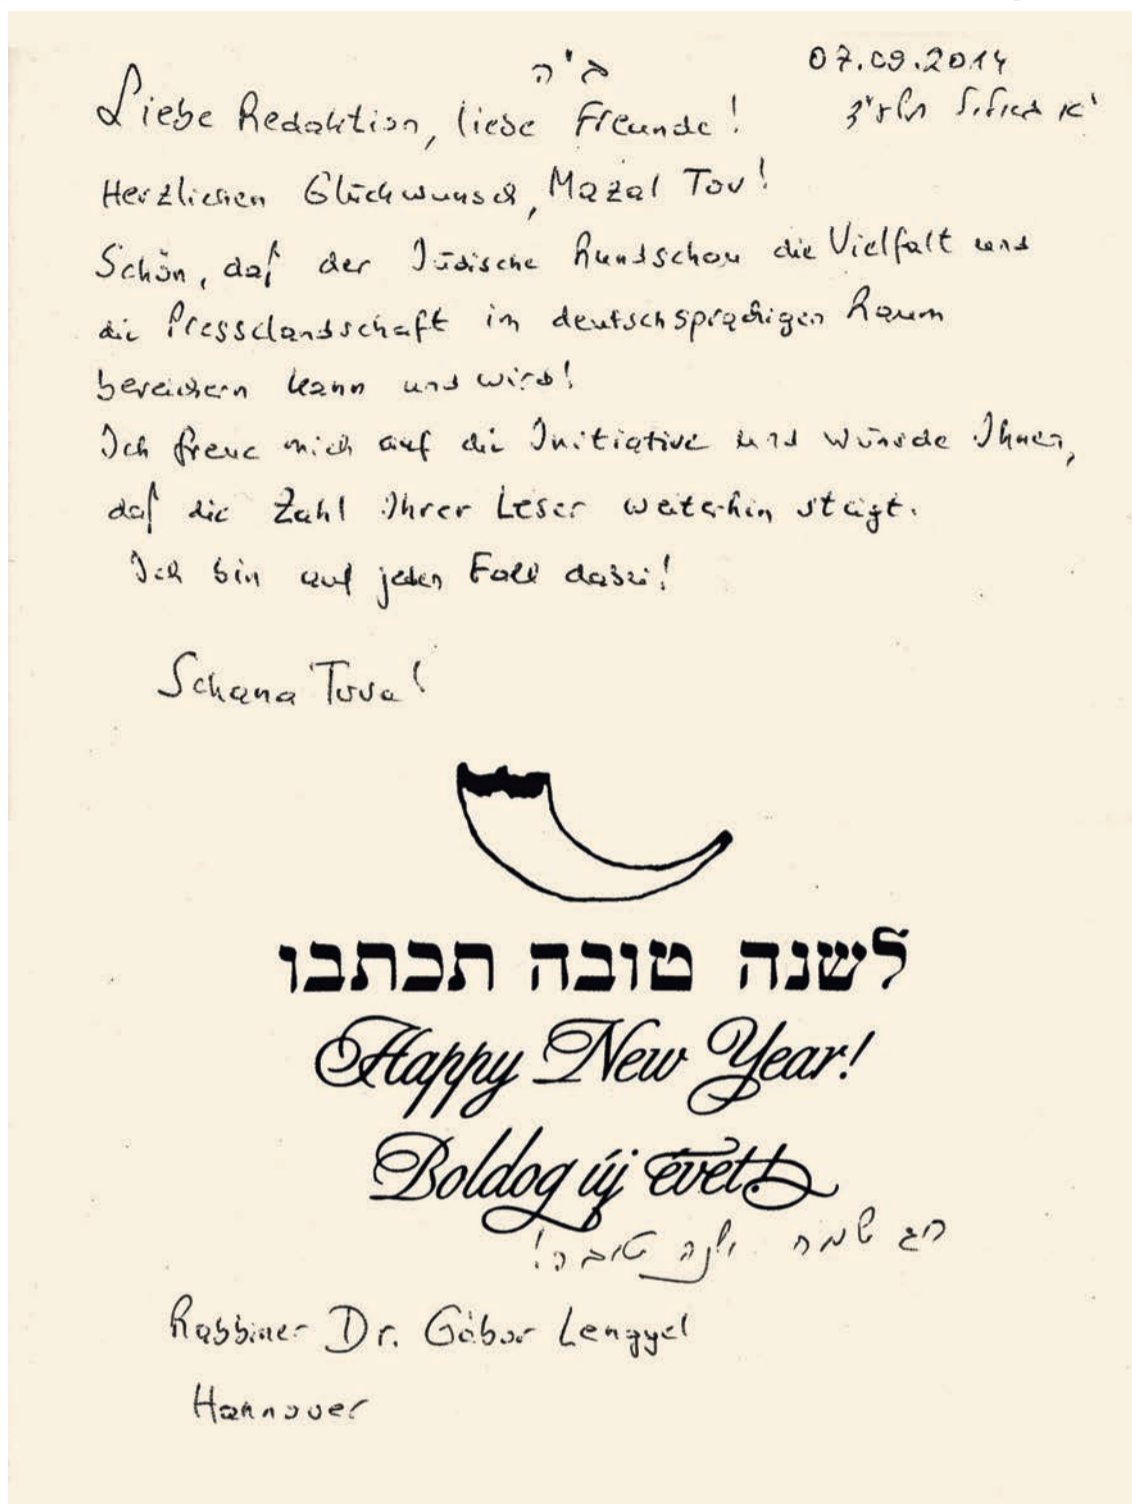 07.09.2014
ב"ה
י"א באלול תשע"ד
Liebe Redaktion, liebe Freunde!
Herzlichen Glückwunsch, Mazal Tov!
Schön, daß der Jüdische Rundschau die Vielfalt und
die Presselandschaft im deutschsprachigen Raum
bereichern kann und wird!
Ich freue mich auf die Initiative und wünsche Ihnen,
daß die Zahl Ihrer Leser weiterhin steigt.
Ich bin auf jeden Fall dabei!
Schana Tova!
לשנה טובה תכתבו
Happy New Year!
Boldog új évet!
חג שמח ושנה טובה!
Rabbiner Dr. Gábor Lengyel
Hannover